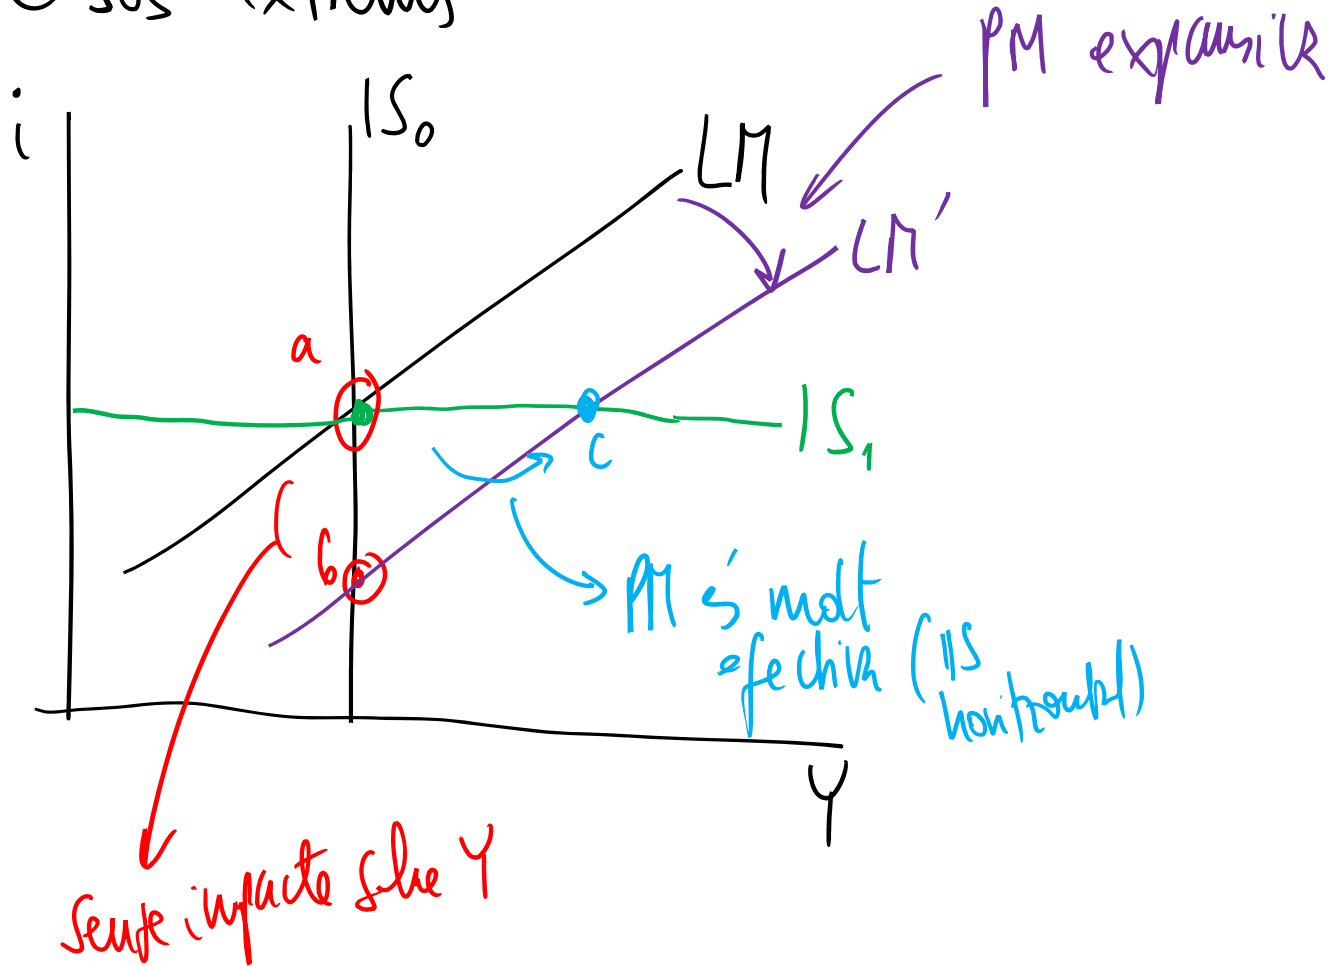 Casos extrems
PM expansiva
i
IS₀
LM
LM'
a
IS₁
c
b
PM és molt
efectiva (IS
horitzontal)
Y
Sense impacte sobre Y